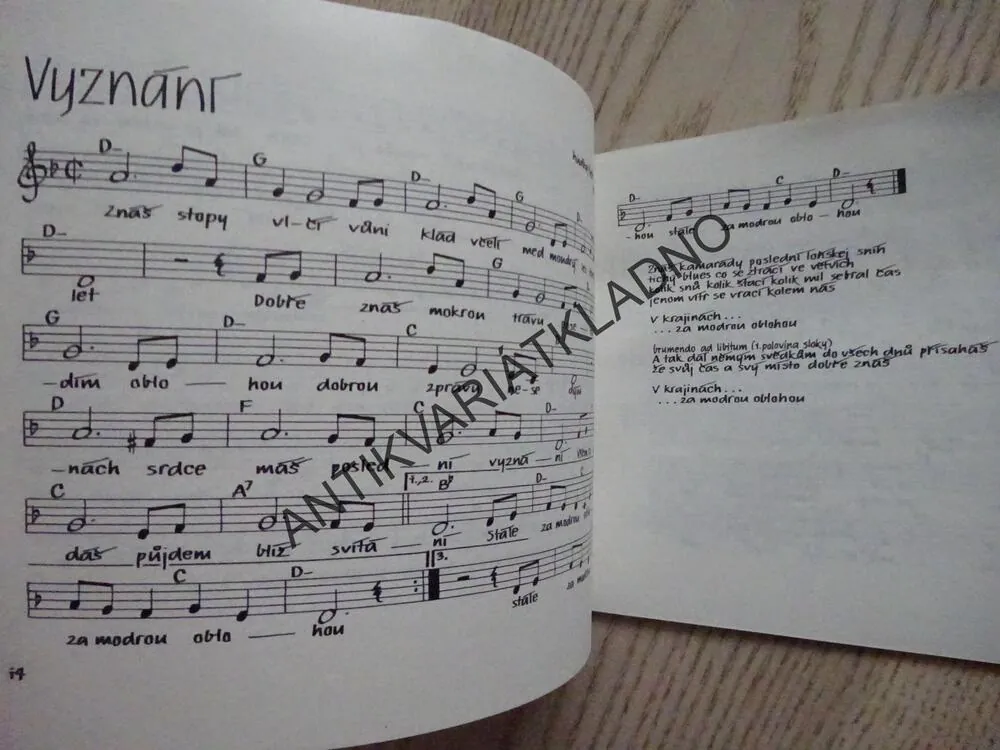 Vyznání
D- G D- G D-
znáš stopy vl-čí vůni klad včelí med moudrý
D- G
let Dobře znáš mokrou trávu
G D- C
-dím oblo — hou dobrou zprávy ne-se dým
D F C D-
-nách srdce máš posled — ní vyzná — ní
C A7 1.,2. B♭ D- C
dáš půjdem blíž svítá — ní Stále za modrou
C D- 3.
za modrou oblo — hou stále
14
D- C D-
-hou stále za modrou oblo — hou
znáš kamarády poslední loňskej sníh
tichý blues co se ztrácí ve větvích
kolik snů kolik stací kolik mil sebral čas
jenom vítr se vrací kolem nás
V krajinách...
...za modrou oblohou
brumendo ad libitum (1. polovina sloky)
A tak dál němým svědkům do všech dnů přísaháš
že svůj čas a svý místo dobře znáš
V krajinách...
...za modrou oblohou
ANTIKVARIÁTKLADNO